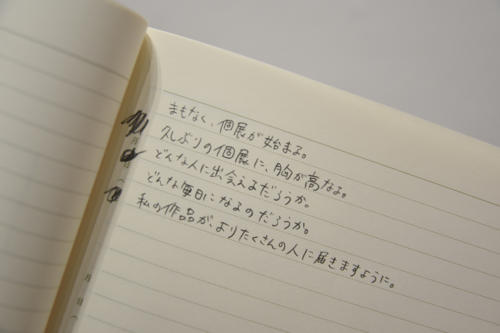 まもなく、個展が始まる。
久しぶりの個展に、胸が高なる。
どんな人に出会えるだろうか。
どんな毎日になるのだろうか。
私の作品が、よりたくさんの人に届きますように。